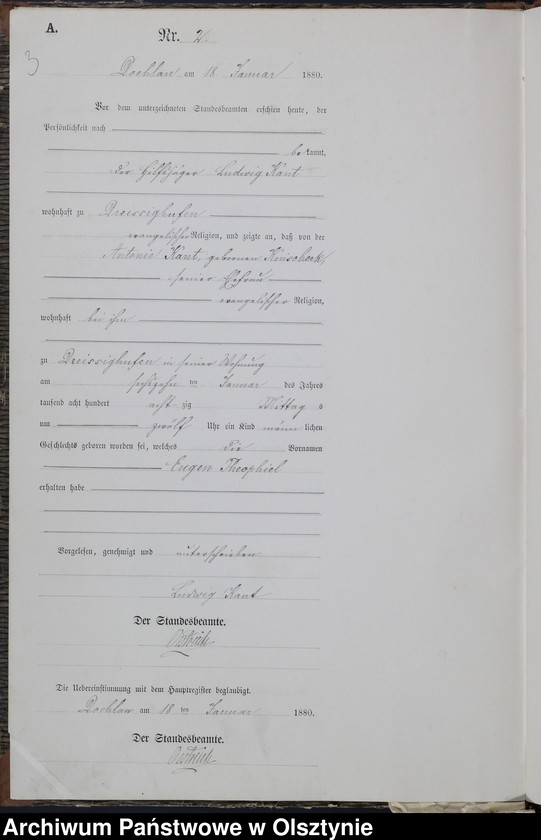 A.
Nr. 2.
3
Dochlau am 18 Januar 1880.
Vor dem unterzeichneten Standesbeamten erschien heute, der
Persönlichkeit nach
bekannt,
der Hilfsjäger Ludwig Kant
wohnhaft zu Dreissighufen
evangelischer Religion, und zeigte an, daß von der
Antonie Kant, geborenen
seiner Ehefrau
evangelischer Religion,
wohnhaft bei ihm
zu Dreissighufen in seiner Wohnung
am sechszehn ten Januar des Jahres
tausend acht hundert acht zig Mittag s
um zwölf Uhr ein Kind männ lichen
Geschlechts geboren worden sei, welches die Vornamen
Eugen Theophiel
erhalten habe
Vorgelesen, genehmigt und unterschrieben
Ludwig Kant
Der Standesbeamte.
Die Uebereinstimmung mit dem Hauptregister beglaubigt.
Dochlau am 18 ten Januar 1880.
Der Standesbeamte.
Archiwum Państwowe w Olsztynie